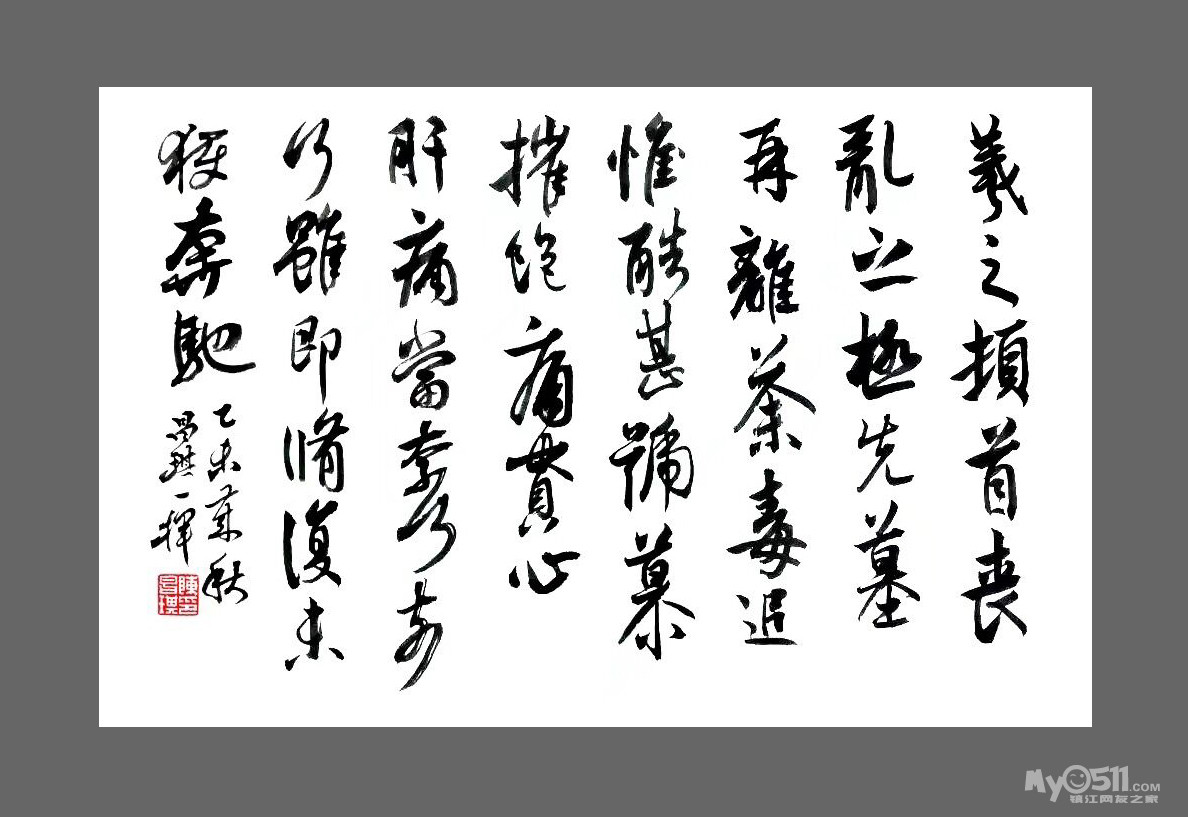 羲之頓首喪
亂之極先墓
再離荼毒追
惟酷甚號慕
摧絕痛貫心
肝痛當奈何奈
何雖即脩復未
獲奔馳
乙未秋
昌一揮
My0511.COM
镇江网友之家